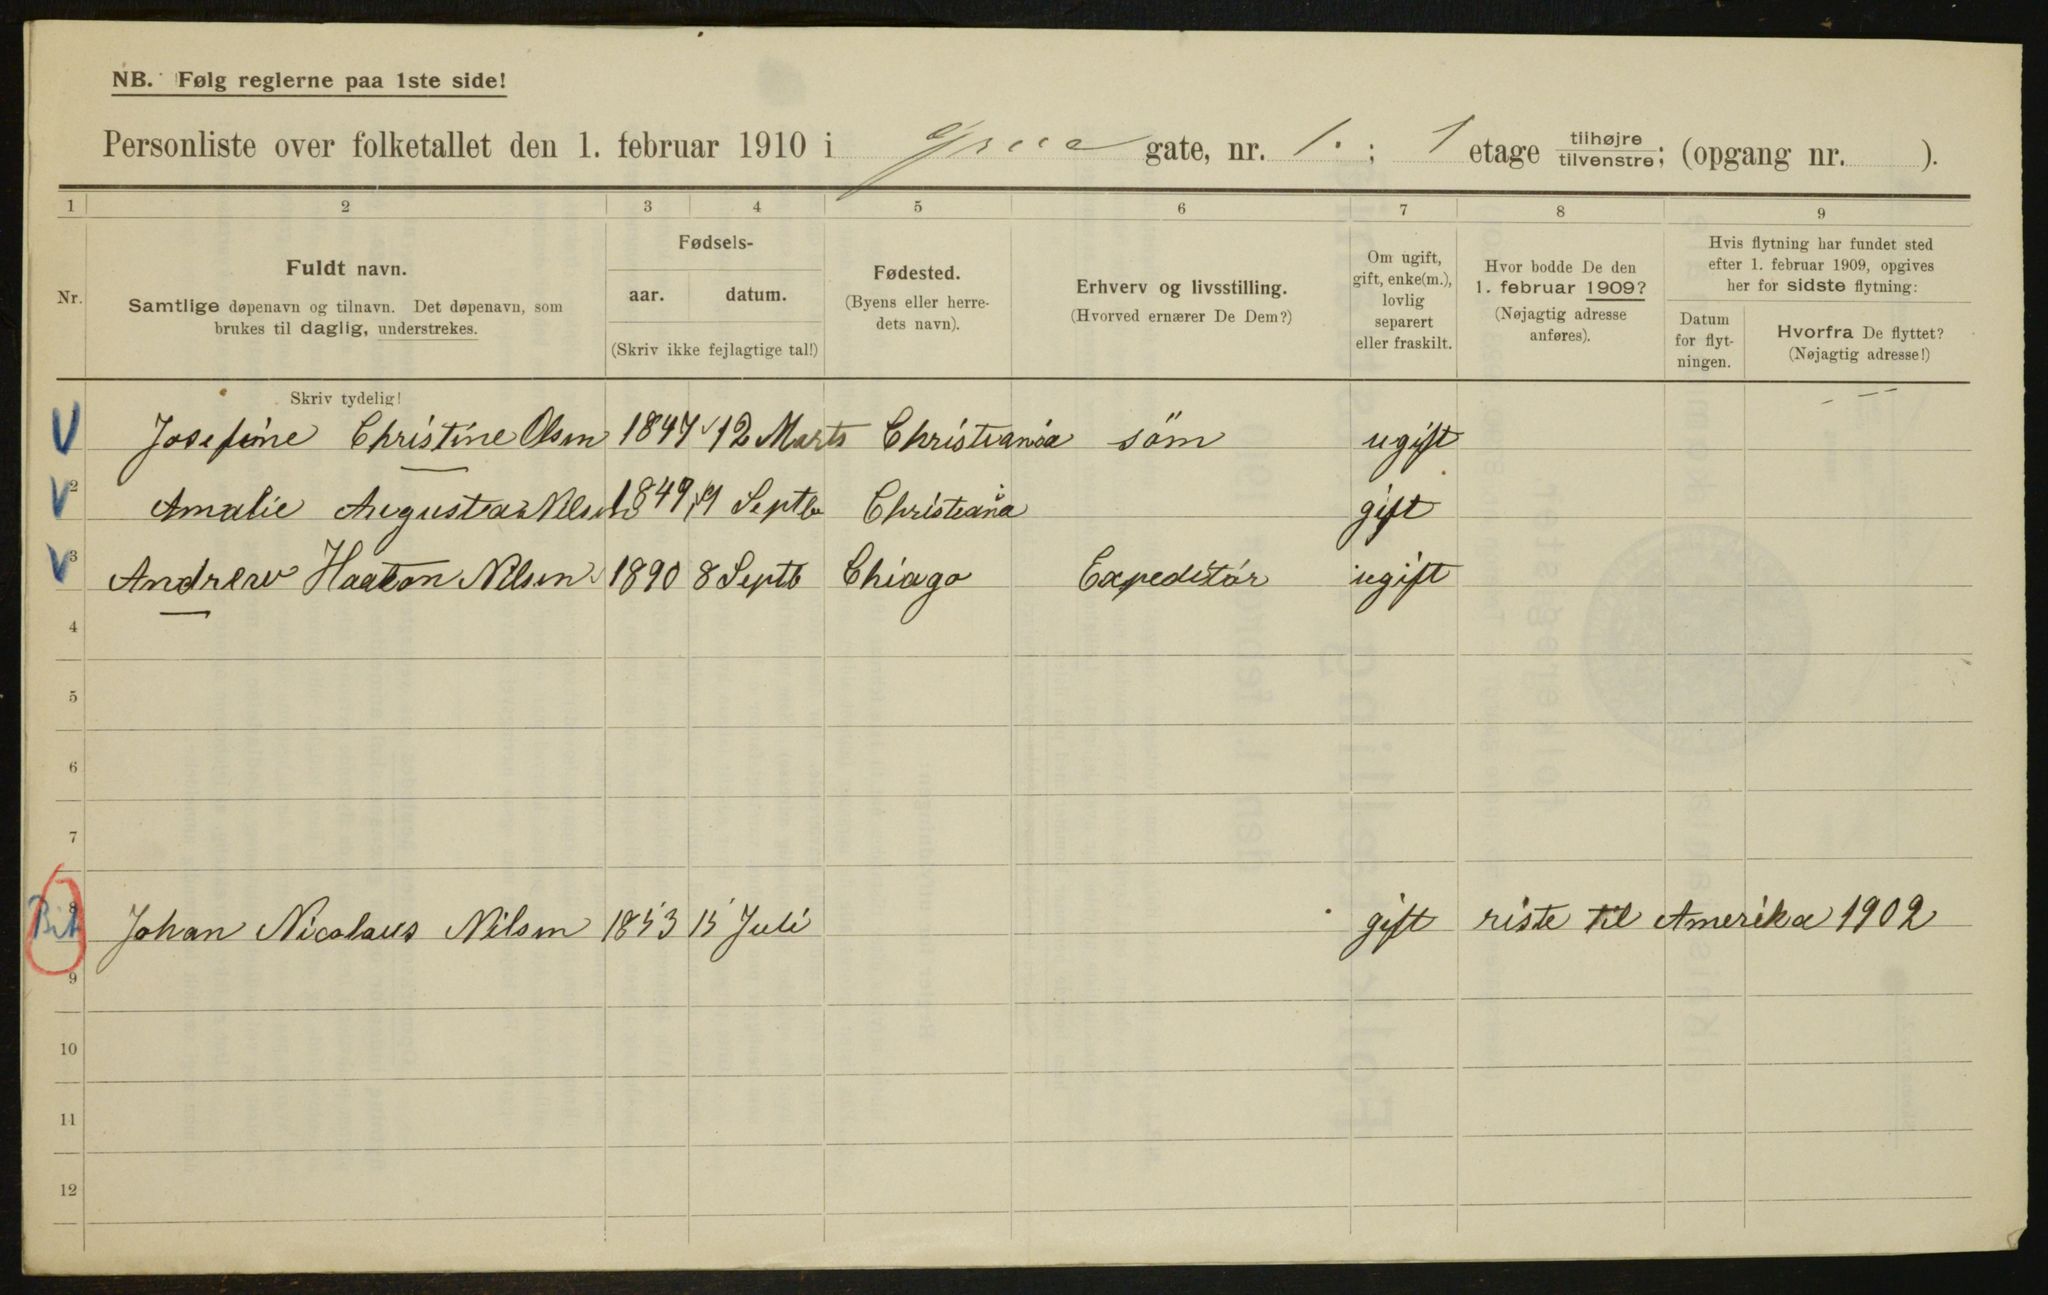 NB. Følg reglerne paa 1ste side!
Personliste over folketallet den 1. februar 1910 i gate, nr. 1. ; 1 etage tilhøjre tilvenstre; (opgang nr. ).
1 2 3 4 5 6 7 8 9
Nr.
Fuldt navn.
Samtlige døpenavn og tilnavn. Det døpenavn, som
brukes til daglig, understrekes.
Fødsels-
aar. datum.
(Skriv ikke fejlagtige tal!)
Fødested.
(Byens eller herre-
dets navn).
Erhverv og livsstilling.
(Hvorved ernærer De Dem?)
Om ugift,
gift, enke(m.),
lovlig
separert
eller fraskilt.
Hvor bodde De den
1. februar 1909?
(Nøjagtig adresse
anføres).
Hvis flytning har fundet sted
efter 1. februar 1909, opgives
her for sidste flytning:
Datum
for flyt-
ningen.
Hvorfra De flyttet?
(Nøjagtig adresse!)
Skriv tydelig!
Josefine Christine Olsen 1847 12 Marts Christiania söm ugift
2 Amalie Augusta Nilsen 1849 Septb Christiania gift
3 Andrew Haakon Nilsen 1890 8 Septb Chiago Expeditör ugift
4
5
6
7
8 Johan Nicolaus Nilsen 1853 15 Juli gift riste til Amerika 1902
9
10
11
12